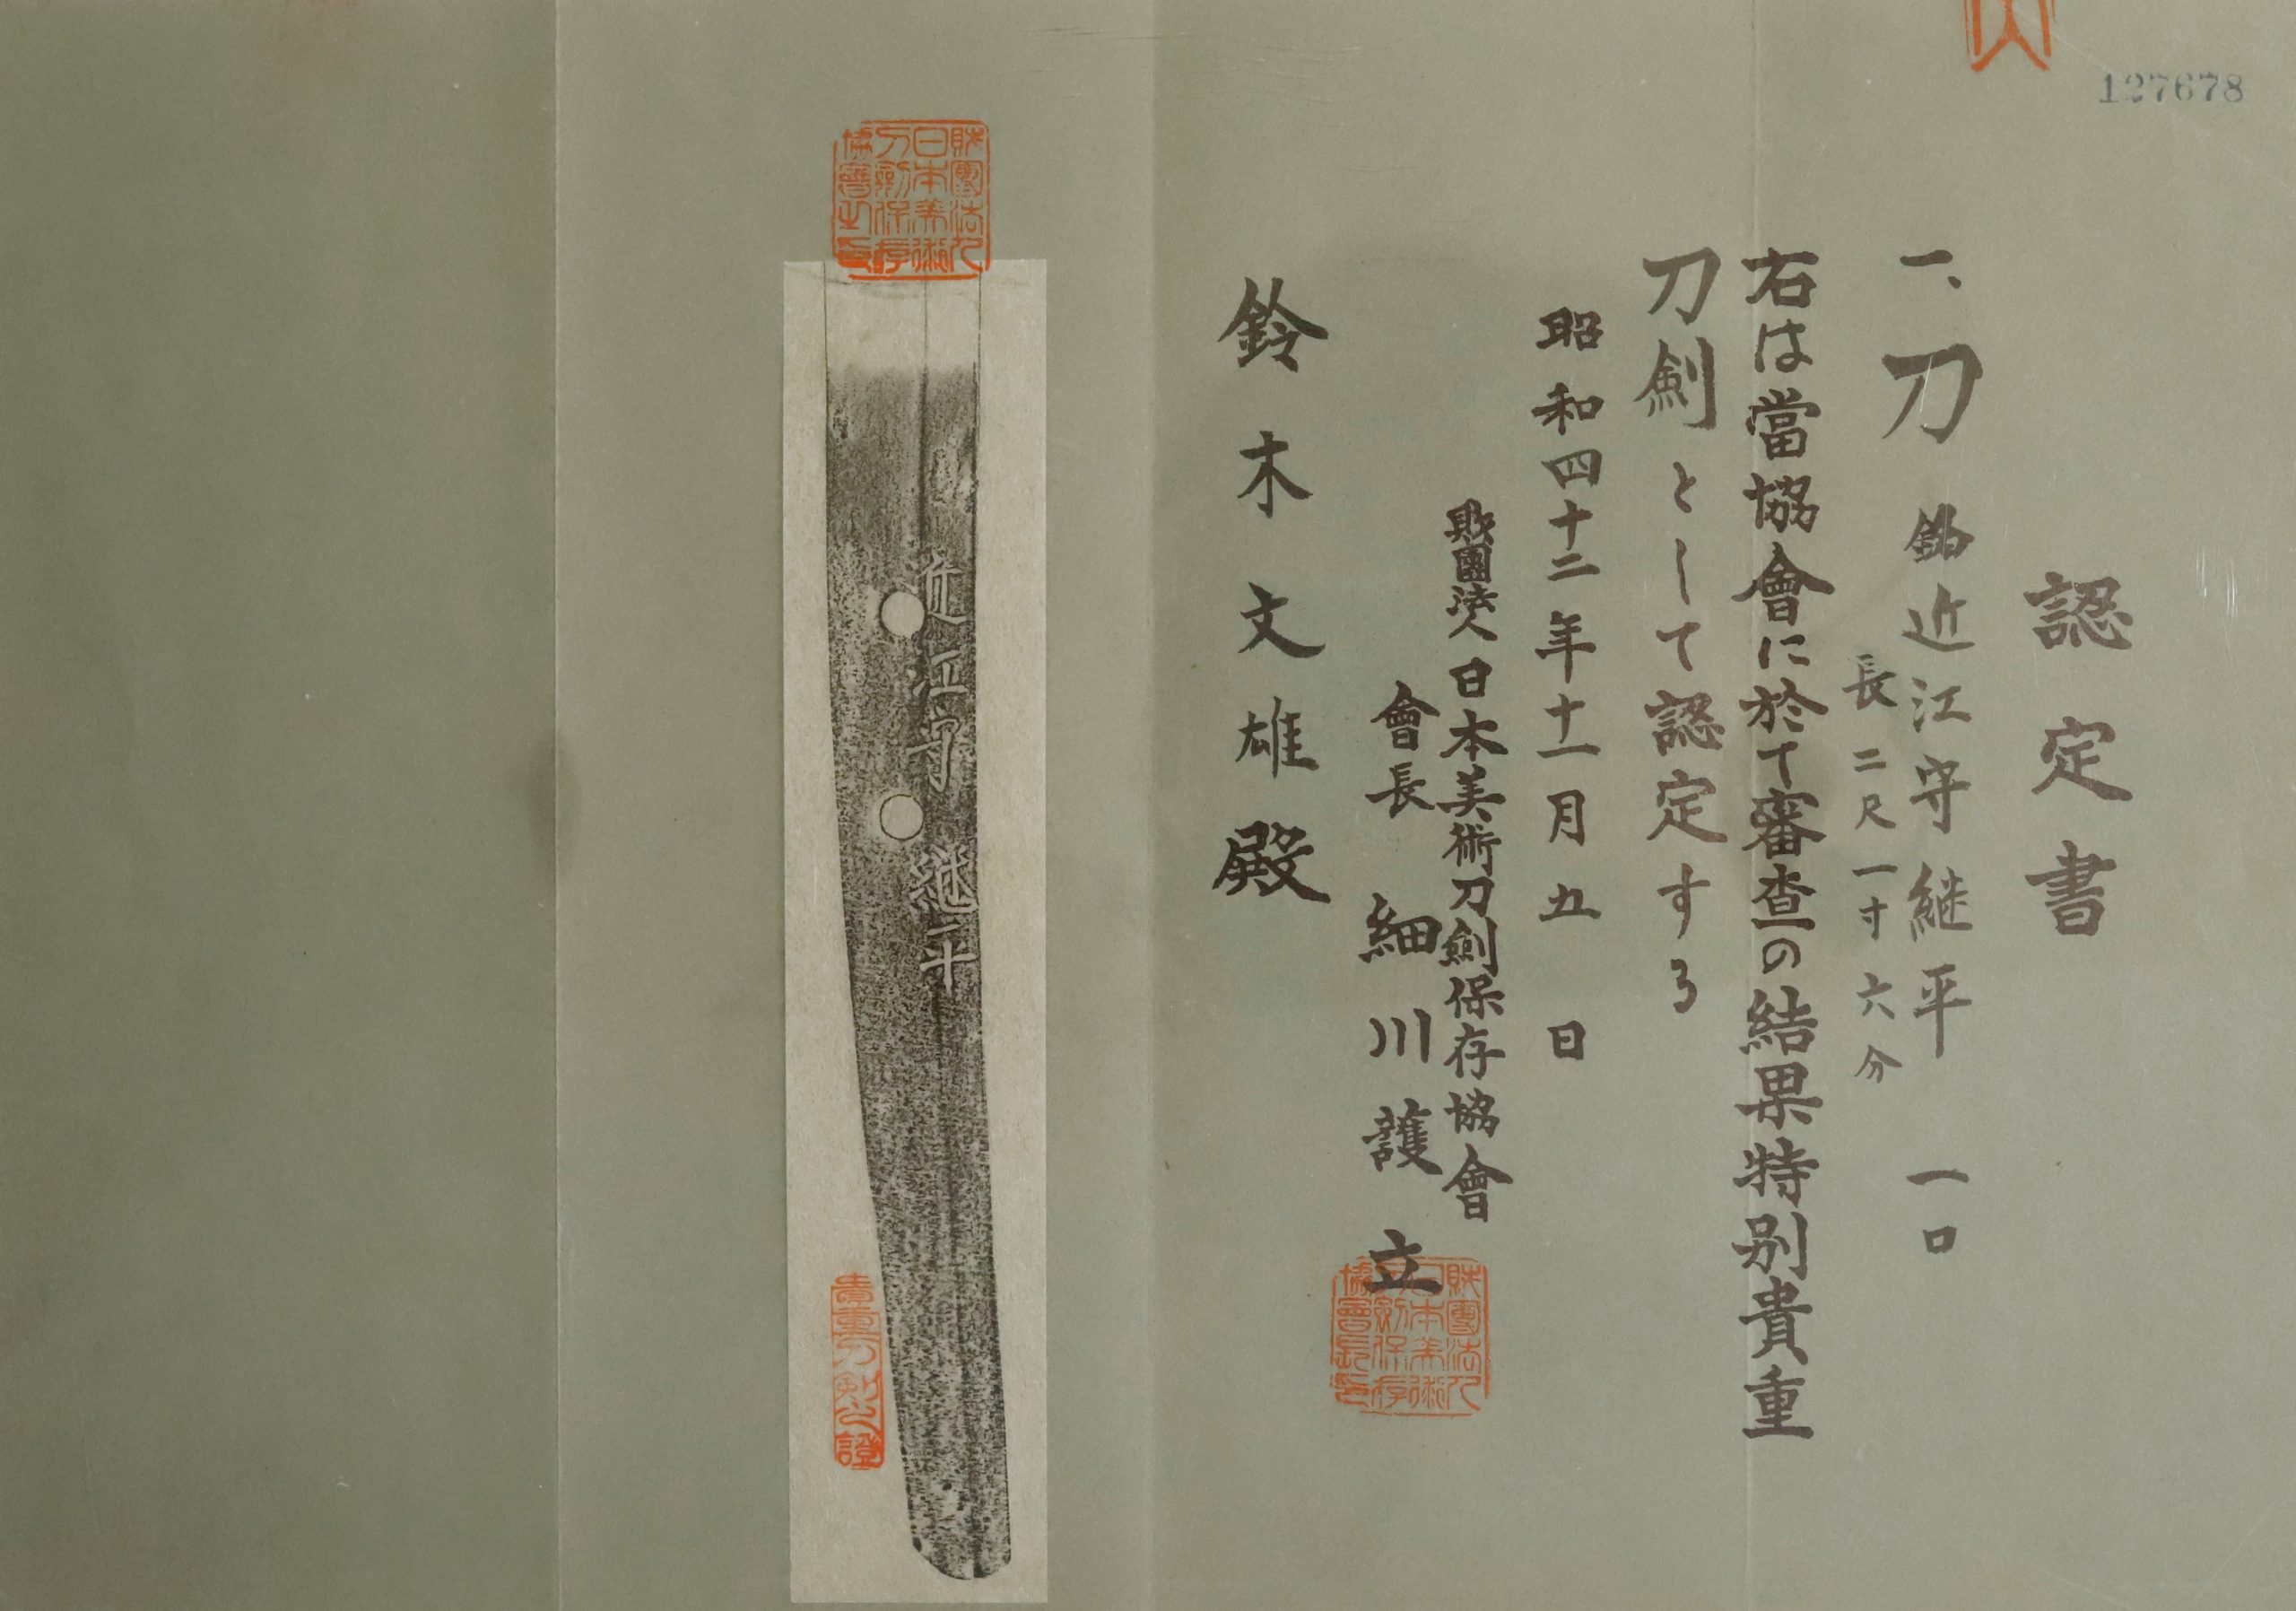 127678
認定書
一、刀 銘近江守継平 一口
長二尺一寸六分
右は當協會に於て審査の結果特別貴重
刀劍として認定する
昭和四十二年十一月五日
財團法人日本美術刀劍保存協會
會長 細川護立
財團法人日本美術刀劍保存協會長之印
鈴木文雄殿
財團法人日本美術刀劍保存協會之印
近江守継平
貴重刀剣之證